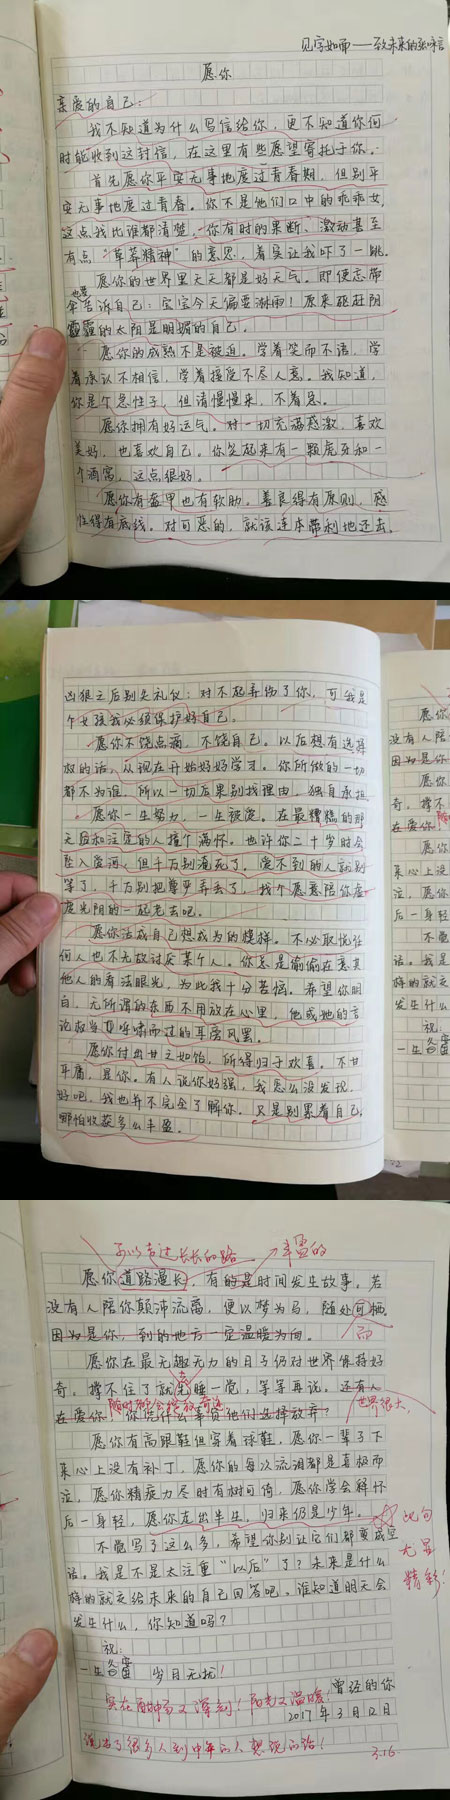 见字如面——致未来的
愿你
亲爱的自己：
我不知道为什么写信给你，更不知道你何
时能收到这封信，在这里有些愿望寄托于你。
首先愿你平安无事地度过青春期，但别平
安无事地度过青春。你不是他们口中的乖乖女，
这点我比谁都清楚，你有时的果断、激动甚至
有点“草莽精神”的意思，着实让我吓了一跳。
愿你的世界里天天都是好天气。即使忘带
伞也要告诉自己：宝宝今天偏要淋雨！原来驱赶阴
霾的太阳是明媚的自己。
愿你的成熟不是被迫。学着笑而不语，学
着承认不相信，学着接受不尽人意。我知道，
你是个急性子，但请慢慢来，不着急。
愿你拥有好运气。对一切充满感激，喜欢
美好，也喜欢自己。你笑起来有一颗虎牙和一
个酒窝，这点很好。
愿你有盔甲也有软肋。善良得有原则，感
性得有底线。对可恶的，就该连本带利地还击。
凶狠之后别失礼仪：对不起弄伤了你，可我是
个女孩我必须保护好自己。
愿你不饶点滴，不饶自己。以后想有选择
权的话，从现在开始好好学习。你所做的一切
都不为谁，所以一切后果别找理由，独自承担。
愿你一生努力，一生被爱。在最糟糕的那
天后和注定的人撞个满怀。也许你二十岁时会
坠入爱河，但千万别淹死了，爱不到的人就别
等了，千万别把尊严弄丢了，找个愿意陪你虚
度光阴的一起老去吧。
愿你活成自己想成为的模样。不必取悦任
何人也不无故讨厌某个人。你总是偷偷在意其
他人的看法眼光，为此我十分苦恼。希望你明
白，无所谓的东西不用放在心里，他或她的言
论权当耳旁风罢。
愿你付出甘之如饴，所得归于欢喜。不甘
平庸，是你。有人说你好强，我怎么没发现，
好吧，我也并不完全了解你。只是别累着自己，
哪怕收获多么丰盈。
可以走过长长的路
丰盈的
愿你道路漫长，有的是时间发生故事。若
没有人陪你颠沛流离，便以梦为马，随处可栖。
因为是你，到的地方一定温暖为向。
愿你在最无趣无力的日子仍对世界保持好
奇。撑不住了就先睡一觉，等等再说。还有人
在爱你，你凭什么辜负他们选择放弃？
世界很大，
愿你有高跟鞋但穿着球鞋，愿你一辈子下
来心上没有补丁，愿你的每次流泪都是喜极而
泣，愿你精疲力尽时有树可倚，愿你学会释怀
后一身轻，愿你走出半生，归来仍是少年。
此句
尤显
精彩！
不觉写了这么多，希望你别让它们都变成空
话。我是不是太注重“以后”了？未来是什么
样的就交给未来的自己回答吧。谁知道明天会
发生什么，你知道吗？
祝：
一生 岁月无扰！
曾经的你
2017年3月12日
3.16